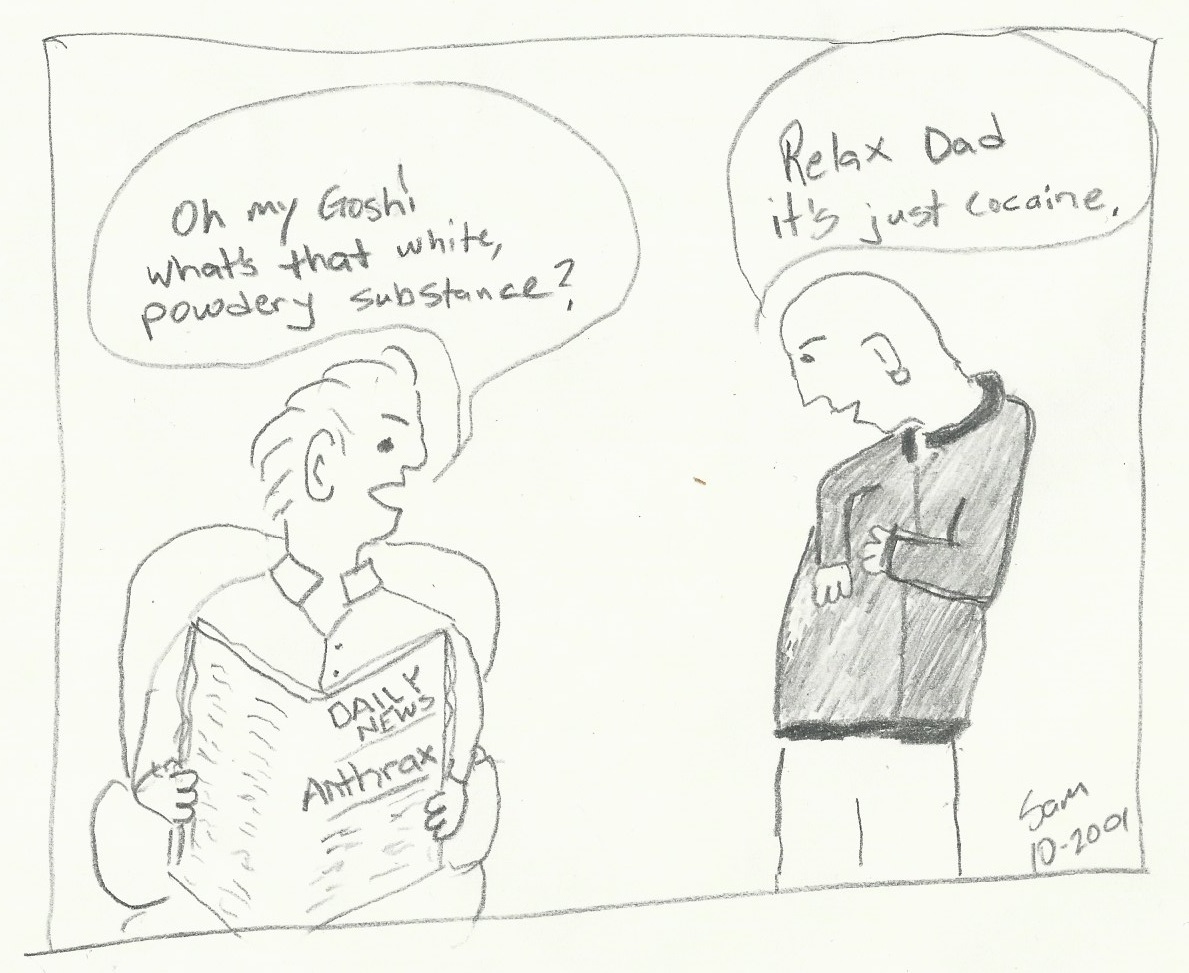 Oh my Gosh!
what's that white,
powdery substance?
Relax Dad
it's just cocaine.
DAILY
NEWS
Anthrax
Sam
10-2001